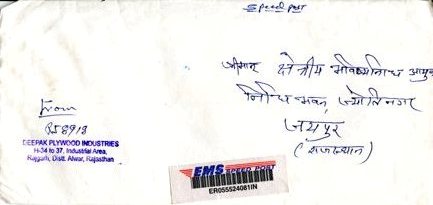 Speed Post
श्रीमान् क्षेत्रीय भविष्यनिधि आयुक्त
निधि भवन, ज्योतिनगर
जयपुर
(राजस्थान)
From
RJ 8913
DEEPAK PLYWOOD INDUSTRIES
H-34 to 37, Industrial Area,
Rajgarh, Distt. Alwar, Rajasthan
EMS SPEED POST
ER055524081IN